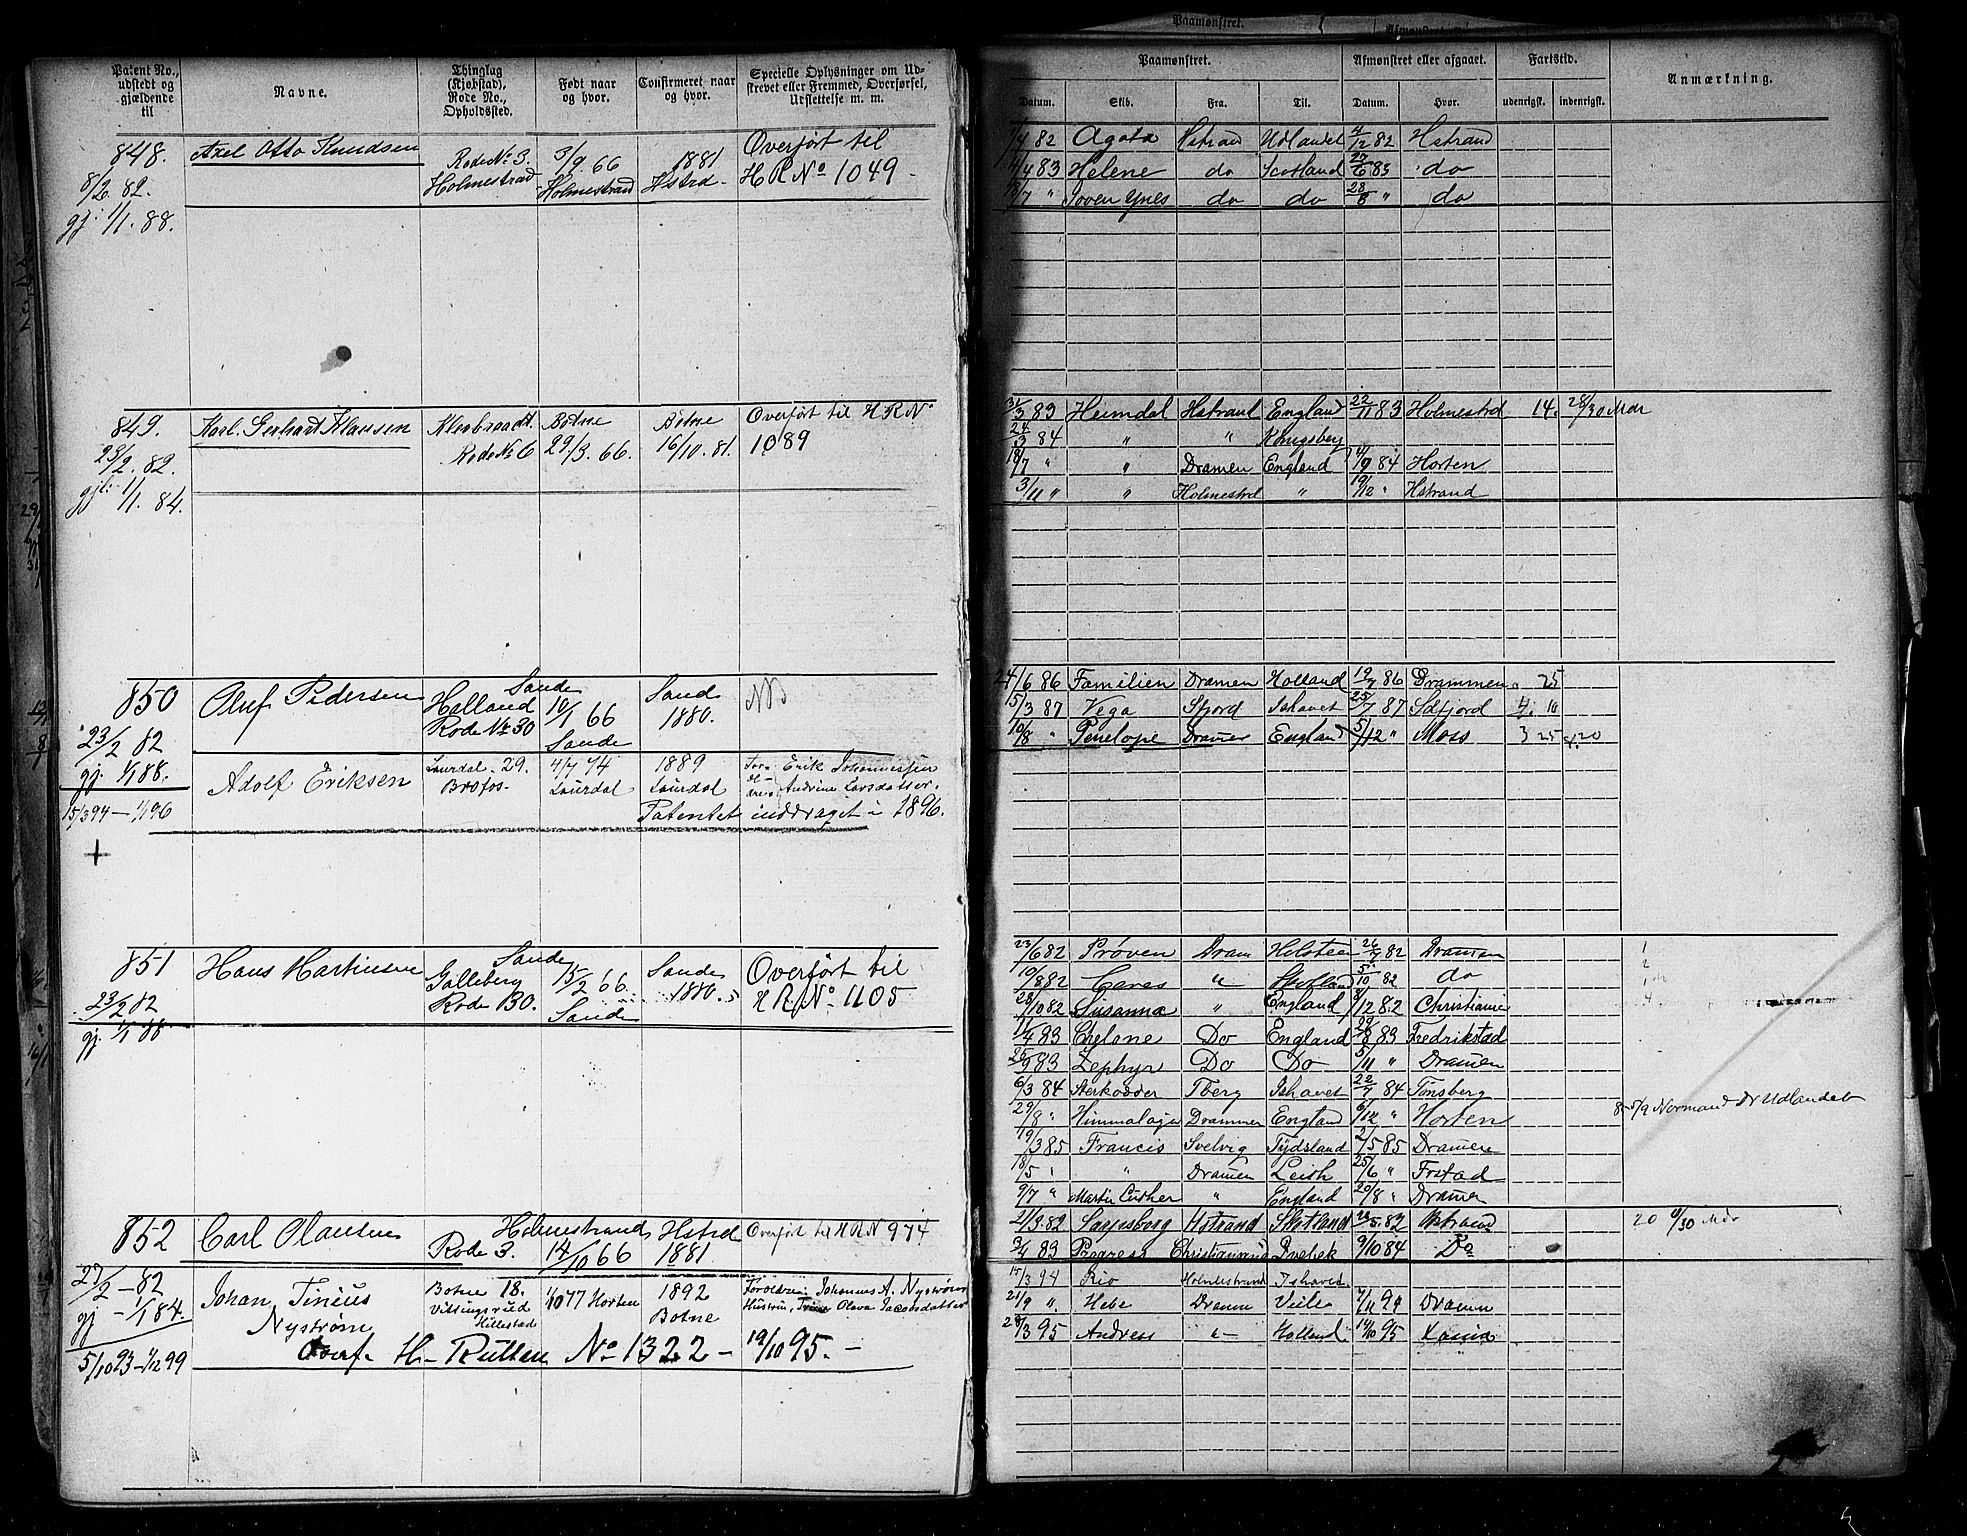 Patent No., udstedt og gjældende til
Navne.
Thinglag (Kjøbstad), Rode No., Opholdssted.
Født naar og hvor.
Confirmeret naar og hvor.
Specielle Oplysninger om Udskrevet eller Fremmed, Overførsel, Udslettelse m. m.
848. Axel Otto Knudsen Rode No 3. 3/9 66 1881 Overført til
8/2 82. Holmestrand Holmestrand Hstrd. H R No 1049
gj: 1/1. 88.
849. Karl Gerhart Klausen Rode No 6 Botne Botne Overført til H R No
23/2. 82. 29/3. 66. 16/10. 81. 1089
gjl: 1/1. 84.
850 Oluf Pedersen Sande 10/1 66 Sand NB
23/2 82 Holland Sande 1880.
gj. 1/1 88. Rode No 30
Adolf Eriksen Laurdal. 29. 4/7 74 1889 Forældre Erik Johannessen
15/3 94 — 1/1 96 Brofos. Laurdal Laurdal Andrine Larsdatter.
Patentet inddraget i 1896.
+
851 Hans Martinsen Sande 15/2 66. Sande Overført til
23/2 82 Galleberg Sande 1880. H R No 1105
gj. 1/1 88 Rode 30.
852 Carl Olausen Holmestrand Hstrd Overført til H R N 974
27/2 — 82 Rode 3. 14/10 66 1881
gj — 1/1 84. Johan Tinius Botne 18. 1/10 77 Horten 1892 Forældre: Johannes A. Nystrøm
Nystrøm Hillestad Botne Hustru, Olava Jacobsdatter
5/10 93 — 1/12 99 Overf. H. Rullen No 1322 — 19/10 95. —
Paamønstret.
Paamønstret. Afmønstret eller afgaaet. Fartstid. Anmærkning.
Datum. Skib. Fra. Til. Datum. Hvor. udenrigst. indenrigst.
1/4 82 Agata Hstrand Udlandet 4/12 82 Hstrand
14/4 83 Helene do Scotland 27/6 83 do
18/7 " Soven Ynes do do 28/8 " do
31/3 83 Heimdal Hstrand England 22/11 83 Holmestrd 14. 28/30 Mdr
24/3 84 " " Königsberg
18/7 " " Dramen England 14/9 84 Horten
3/11 " " Holmestrd " 19/12 " Hstrand
24/6 86 Familien Dramen Holland 12/7 86 Drammen 25
15/3 87 Vega Sfjord Ishavet 25/7 87 Sdfjord 4. 10
10/8 " Penelope Dramen England 5/12 " Moss 3 25 4.20
23/6 82 Prøven Dram Holsteen 26/7 82 Dramen
10/8 82 Ceres " Skotland 5/10 82 do
28/10 82 Susanna " England 4/12 82 Christiania
11/4 83 Chelone Do England 29/8 83 Fredrikstad
25/9 83 Zephyr Do Do 5/11 " Dramen
6/3 84 Sterkodder Tberg Ishavet 22/7 84 Tønsberg
29/8 " Himmalaya Drammen England 6/12 " Horten 85 5/9 Normand Dr Udlandet
19/3 85 Francis Svelvig Tydsland 2/5 85 Dramen
18/5 " " Dramen Leith 25/6 " Frstad
9/7 " Martin Luther " England 20/8 " Dramen
21/3 82 Sarpsborg Hstrand Skotland 22/5 82 Hstrand 20 6/30 Mdr
3/4 83 Progress Christianssand 9/10 84 Do
15/3 94 Rio Holmestrand Ishavet
21/9 " Hebe Dramen Veile 7/11 94 Dramen
28/3 95 Andreas " Holland 14/10 95